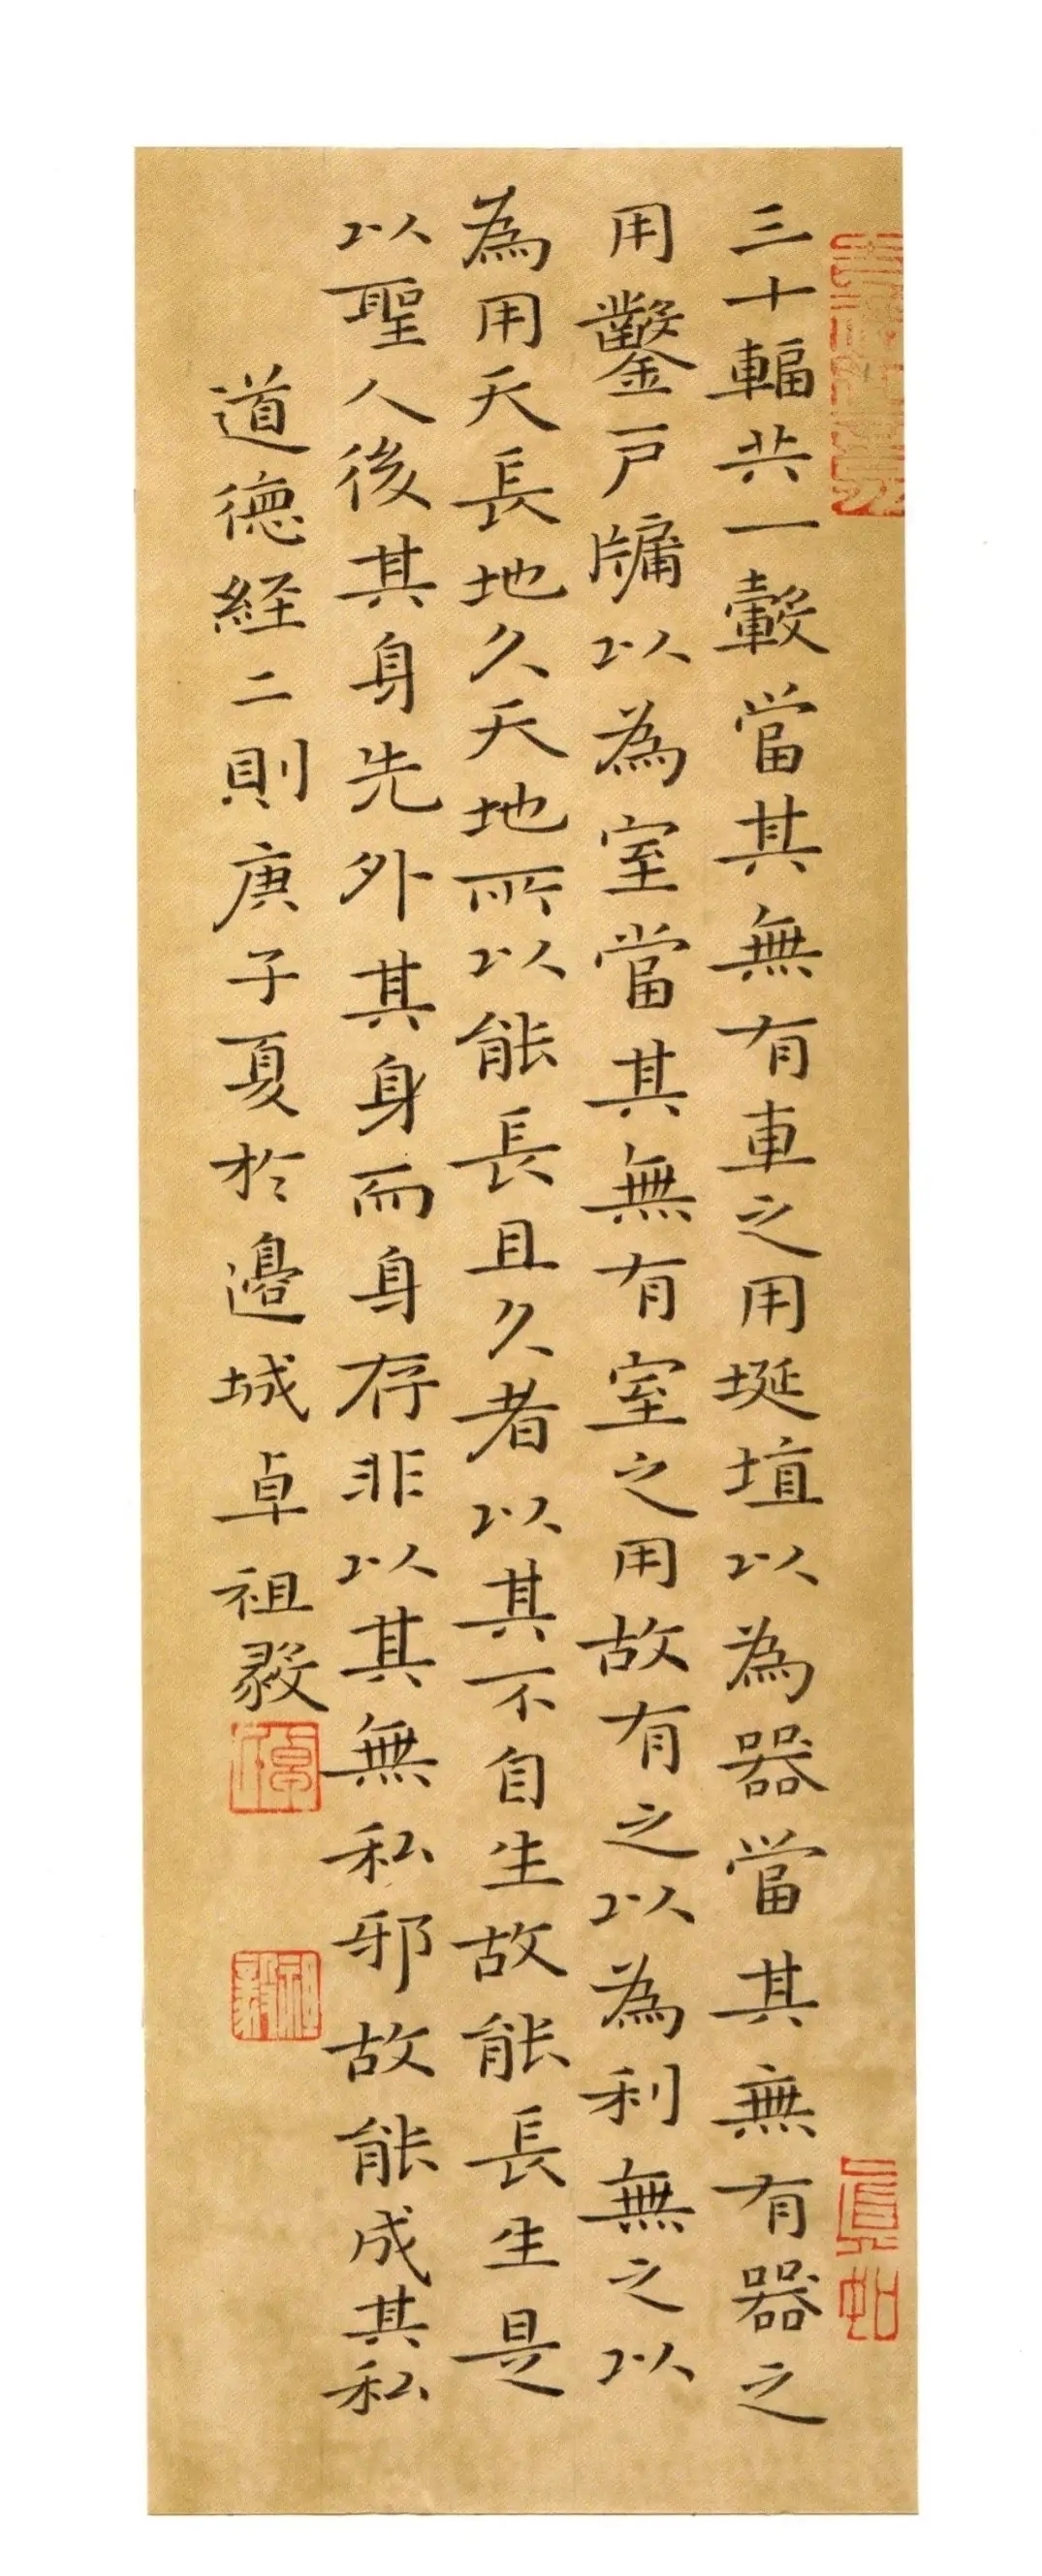 三十輻共一轂當其無有車之用埏埴以為器當其無有器之
用鑿戶牖以為室當其無有室之用故有之以為利無之以
為用天長地久天地所以能長且久者以其不自生故能長生是
以聖人後其身先外其身而身存非以其無私邪故能成其私
道德経二則庚子夏於邊城卓祖毅
祖毅